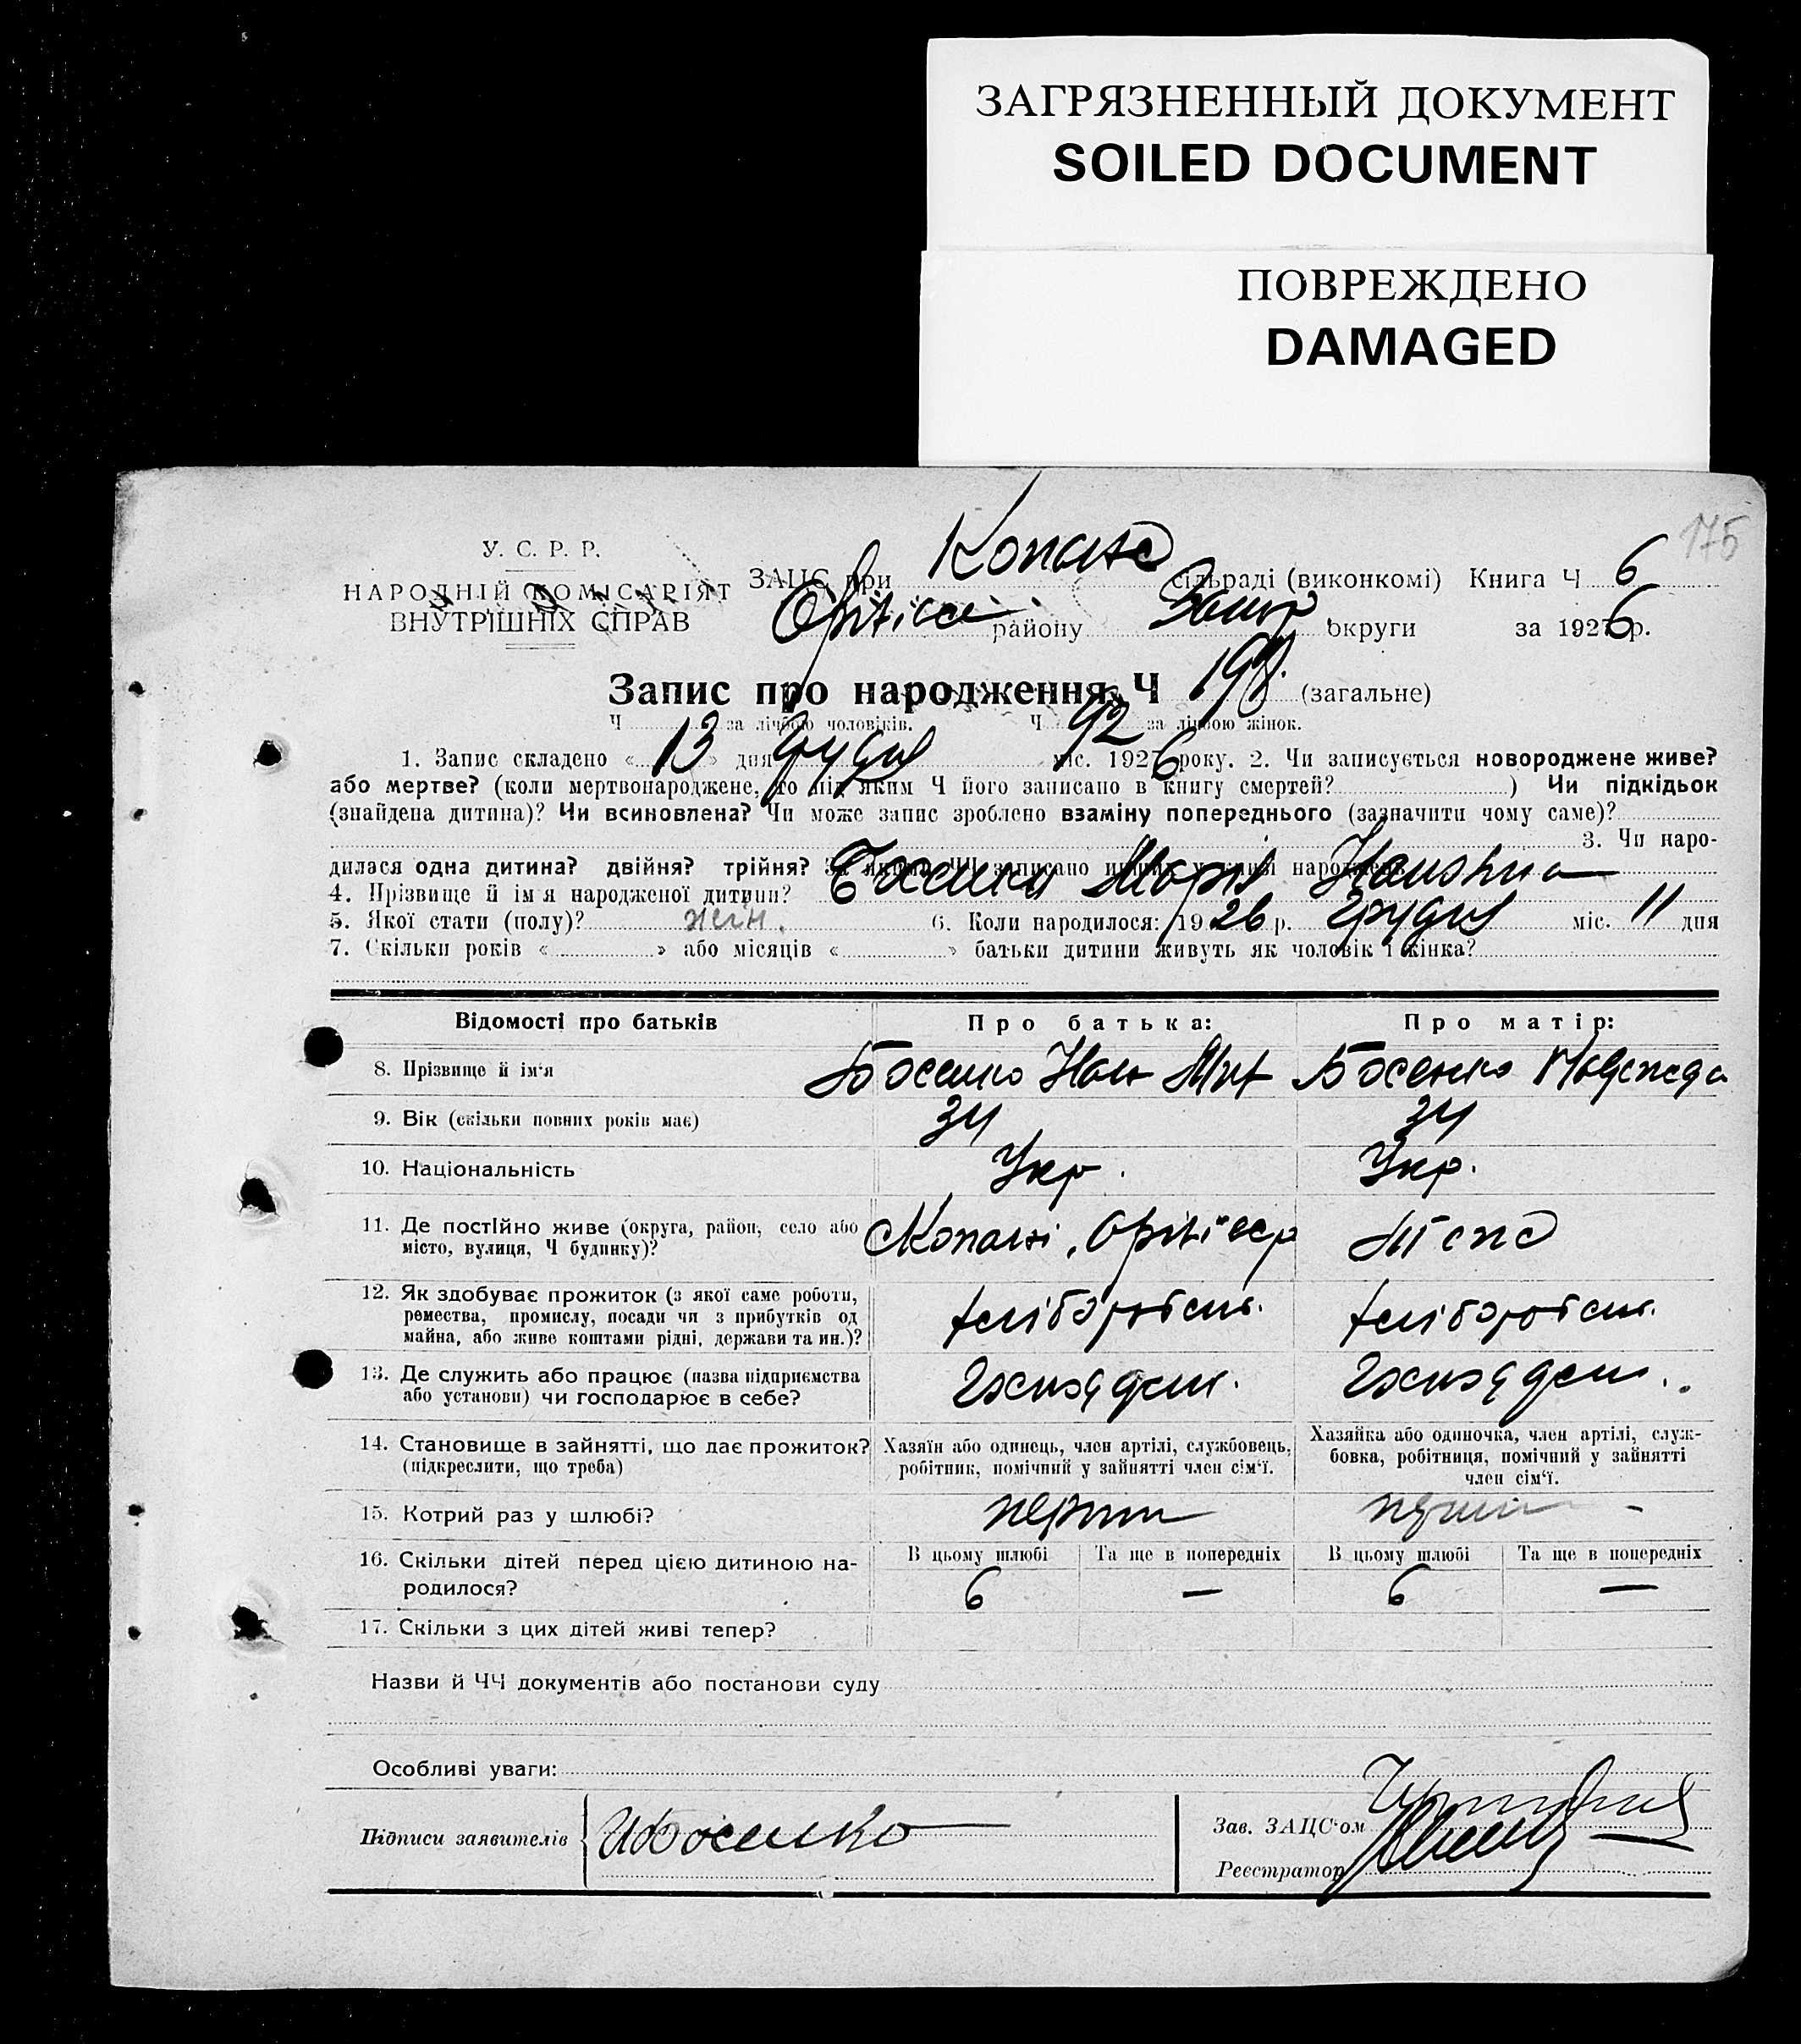 ЗАГРЯЗНЕННЫЙ ДОКУМЕНТ
SOILED DOCUMENT
ПОВРЕЖДЕНО
DAMAGED
175
У. С. Р. Р.
НАРОДНІЙ КОМІСАРІЯТ
ВНУТРІШНІХ СПРАВ
ЗАЦС при Копанс сільраді (виконкомі) Книга Ч 6
району округи за 1926 р.
Запис про народження Ч 198. (загальне)
Ч за лічбою чоловіків. Ч 92 за лічбою жінок.
1. Запис складено « 13 » дня грудня міс. 1926 року. 2. Чи записується новороджене живе?
або мертве? (коли мертвонароджене, то під яким Ч його записано в книгу смертей? ) Чи підкідьок
(знайдена дитина)? Чи всиновлена? Чи може запис зроблено взаміну попереднього (зазначити чому саме)?
3. Чи наро-
дилася одна дитина? двійня? трійня? За якими ЧЧ записано инших у книзі народжень
4. Прізвище й ім я народженої дитини? Босенко Марія Іванівна
5. Якої стати (полу)? жін. 6. Коли народилося: 1926 р. грудня міс. 11 дня
7. Скільки років « » або місяців « » батьки дитини живуть як чоловік і жінка?
Відомості про батьків Про батька: Про матір:
8. Прізвище й ім‘я Босенко Іван Мит Босенко Надежда
9. Вік (скільки повних років має) 34 34
10. Національність Укр. Укр.
11. Де постійно живе (округа, район, село або
місто, вулиця, Ч будинку)? Копані, Оріхівськ Теж
12. Як здобуває прожиток (з якої саме роботи,
ремества, промислу, посади чи з прибутків од
майна, або живе коштами рідні, держави та ин.)? хліборобств. хліборобств.
13. Де служить або працює (назва підприємства
або установи) чи господарює в себе?
14. Становище в зайнятті, що дає прожиток?
(підкреслити, що треба)
Хазяїн або одинець, член артілі, службовець,
робітник, помічний у зайнятті член сім‘ї.
Хазяйка або одиночка, член артілі, служ-
бовка, робітниця, помічний у зайнятті
член сім‘ї.
15. Котрий раз у шлюбі? перший перший
16. Скільки дітей перед цією дитиною на-
родилося?
В цьому шлюбі Та ще в попередніх В цьому шлюбі Та ще в попередніх
6 — 6 —
17. Скільки з цих дітей живі тепер?
Назви й ЧЧ документів або постанови суду
Особливі уваги:
Підписи заявителів ИБосенко
Зав. ЗАЦС‘ом
Реєстратор